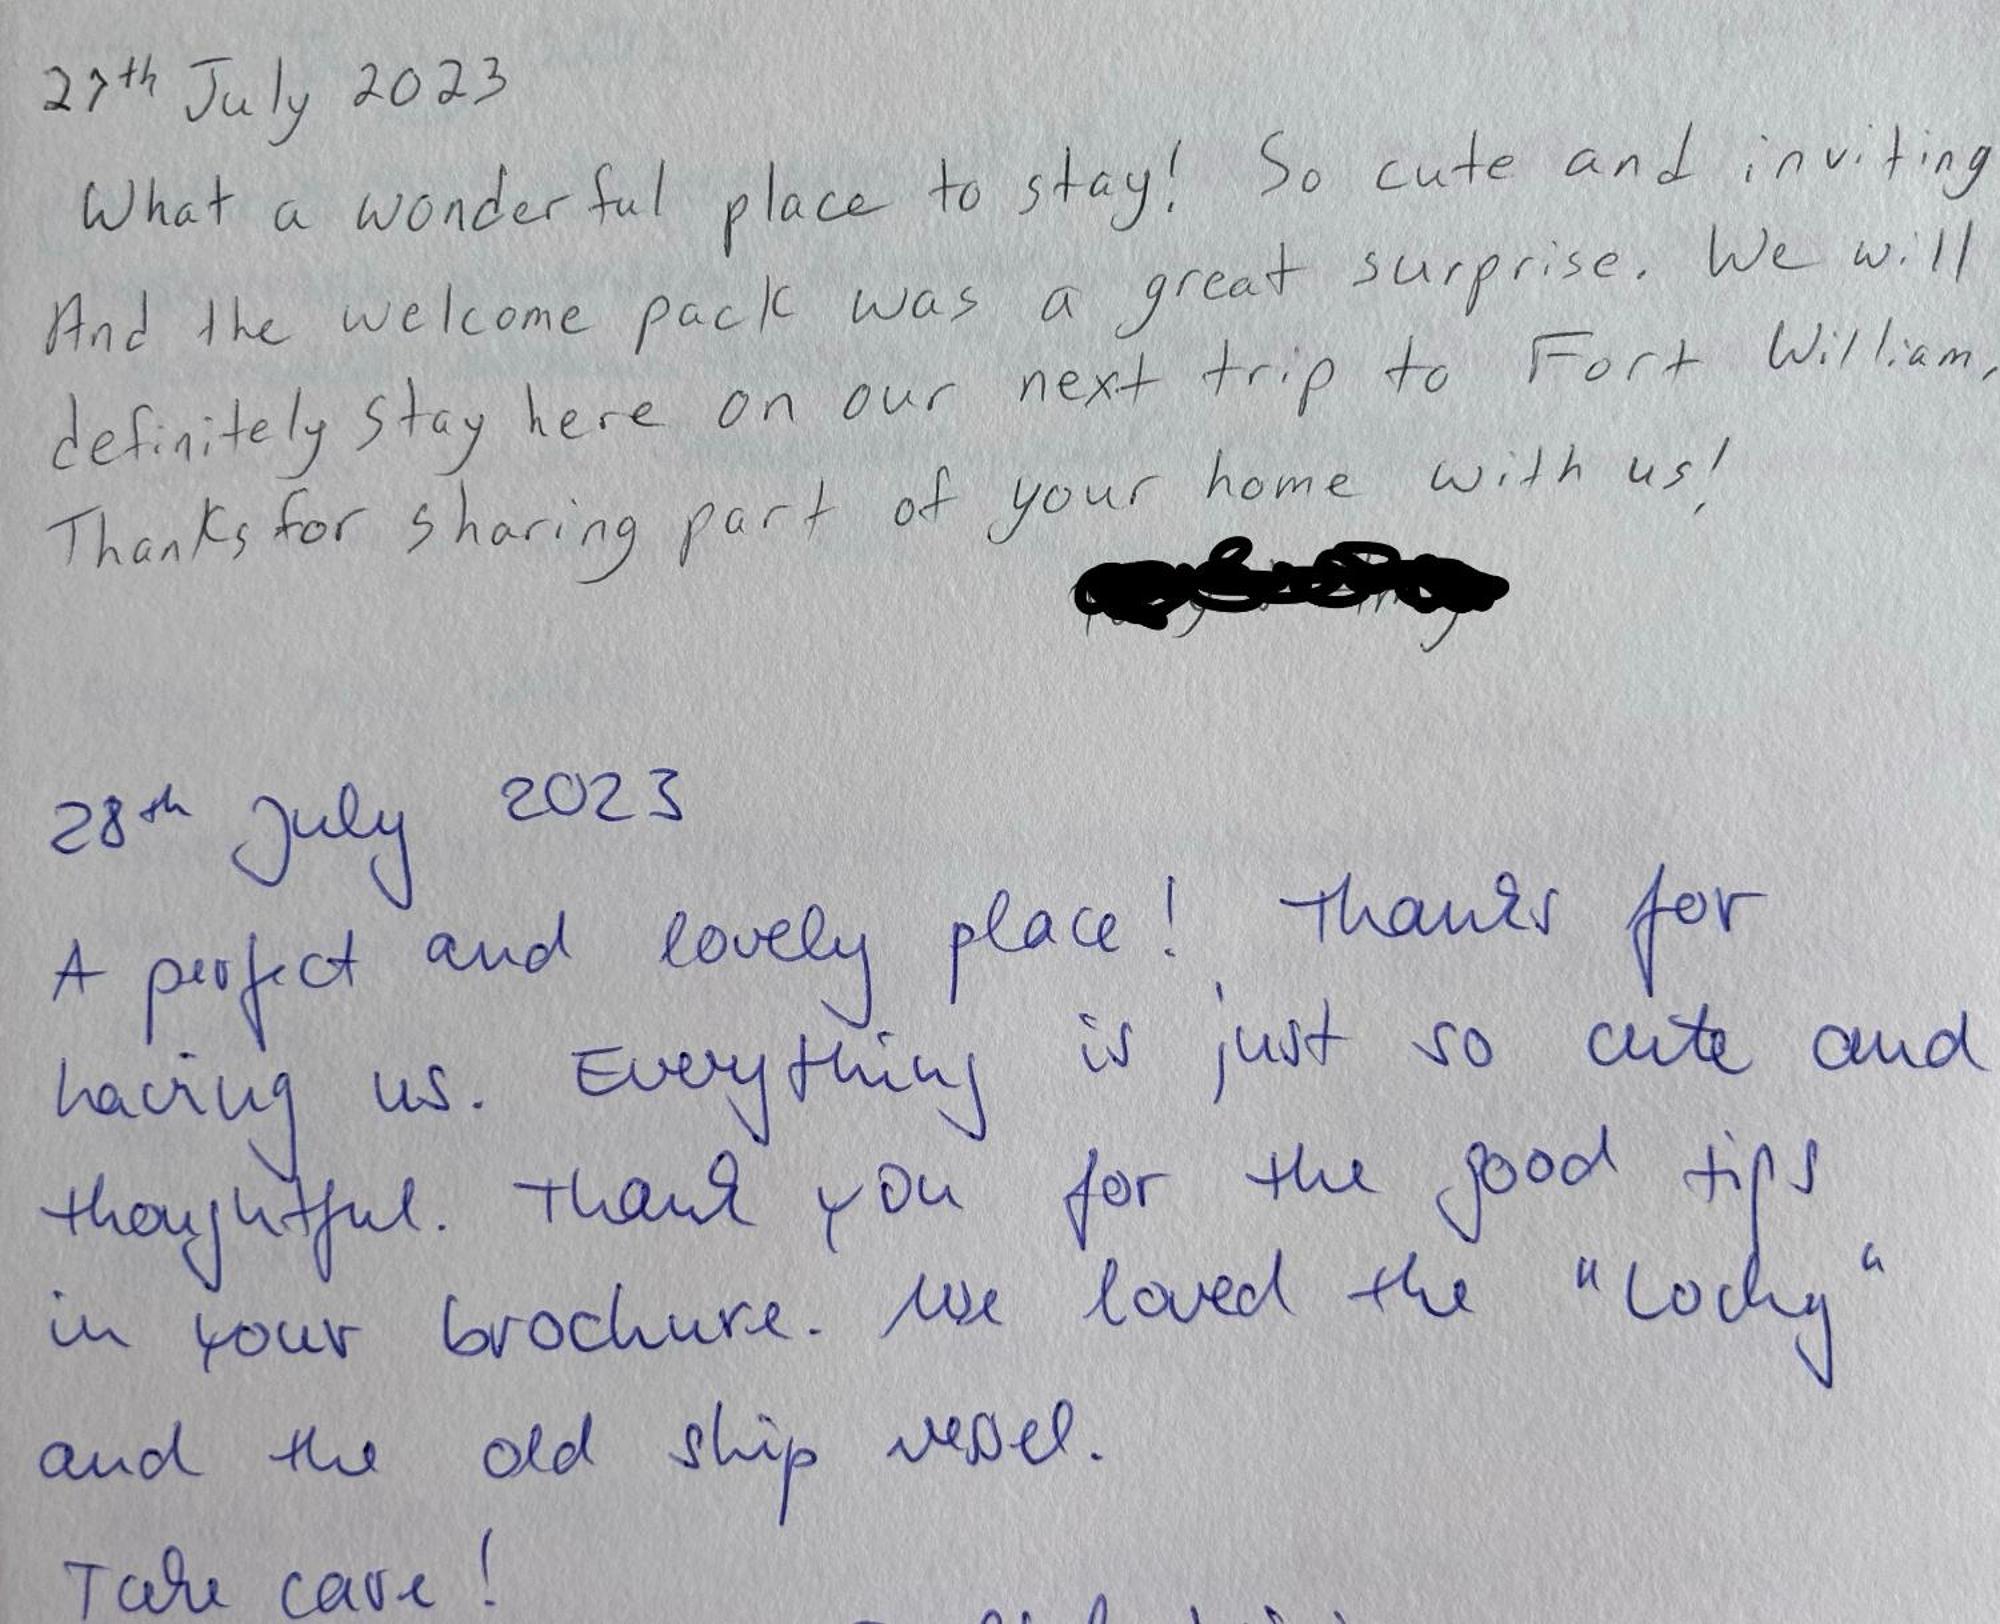 27th July 2023
What a wonderful place to stay! So cute and inviting
And the welcome pack was a great surprise. We will
definitely stay here on our next trip to Fort William,
Thanks for sharing part of your home with us!
28th July 2023
A perfect and lovely place! Thanks for
having us. Everything is just so cute and
thoughtful. Thank you for the good tips
in your brochure. We loved the "Lochy"
and the old ship vessel.
Take care!